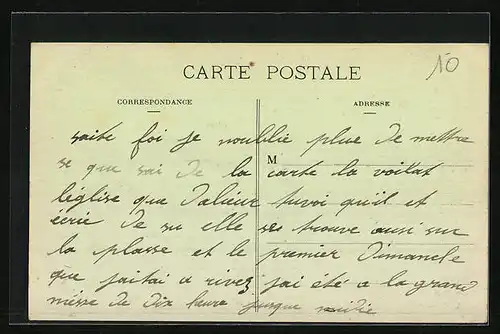 10
CARTE POSTALE
CORRESPONDANCE
ADRESSE
saite foi je noublie plue de mettre
se que sai de la carte la voilat
M
léglise que dalieur tuvoi quil et
écrie de su elle se trouve ausi sur
la plasse et le premier dimancle
que jaitai a rivez jai été a la grand
messe de dix heure jusque midie